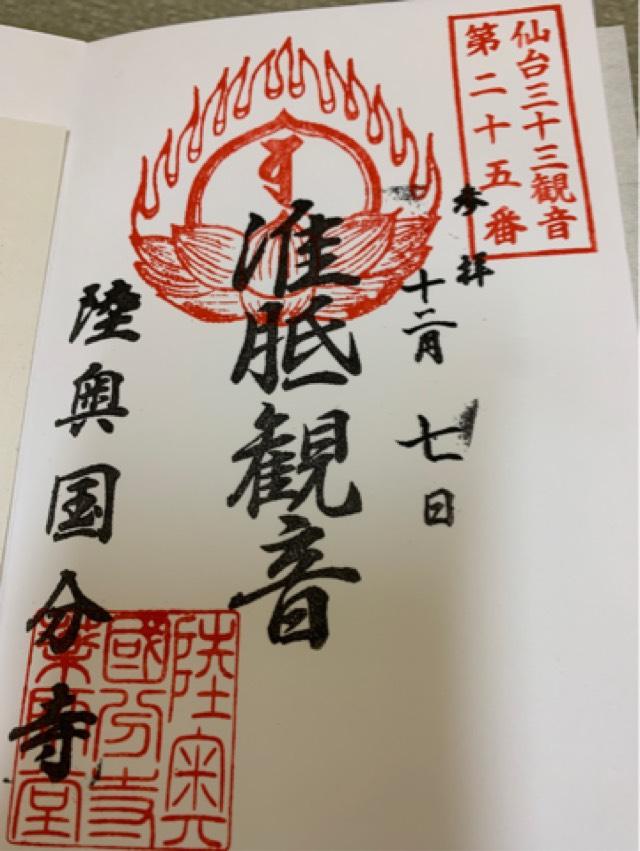 仙台三十三観音
第二十五番
参拝
十二月七日
准胝観音
陸奥国分寺
陸奥
國分寺
薬師堂